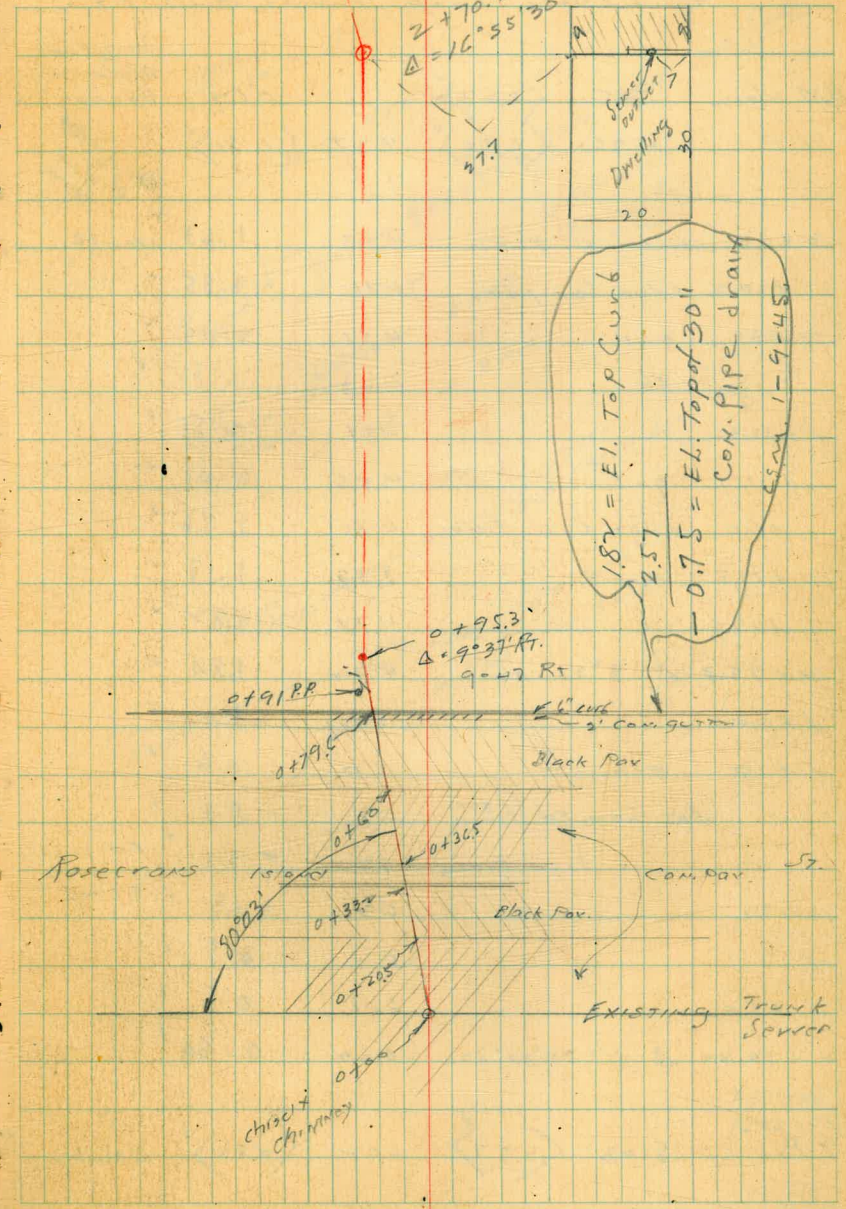 2+70.
Δ = 16°55'30
9
8
7
Sewer
outlet
Dwelling
30
20
37.7
1.82 = El. Top Curb
2.57
- 0.75 = EL. Top of 30"
Con. Pipe drain
1-9-45
0+95.3
Δ = 9°37' Rt.
9-47 Rt
0+91 P.P.
6" curb
2' Con. gutter
0+79.6
Black Pav
0+60
0+36.5
Rosecrans Island Con. Pav. St.
80°03'
0+33.2
Black Pav.
0+20.5
Existing Trunk
Sewer
0+00
chisel x
chimney